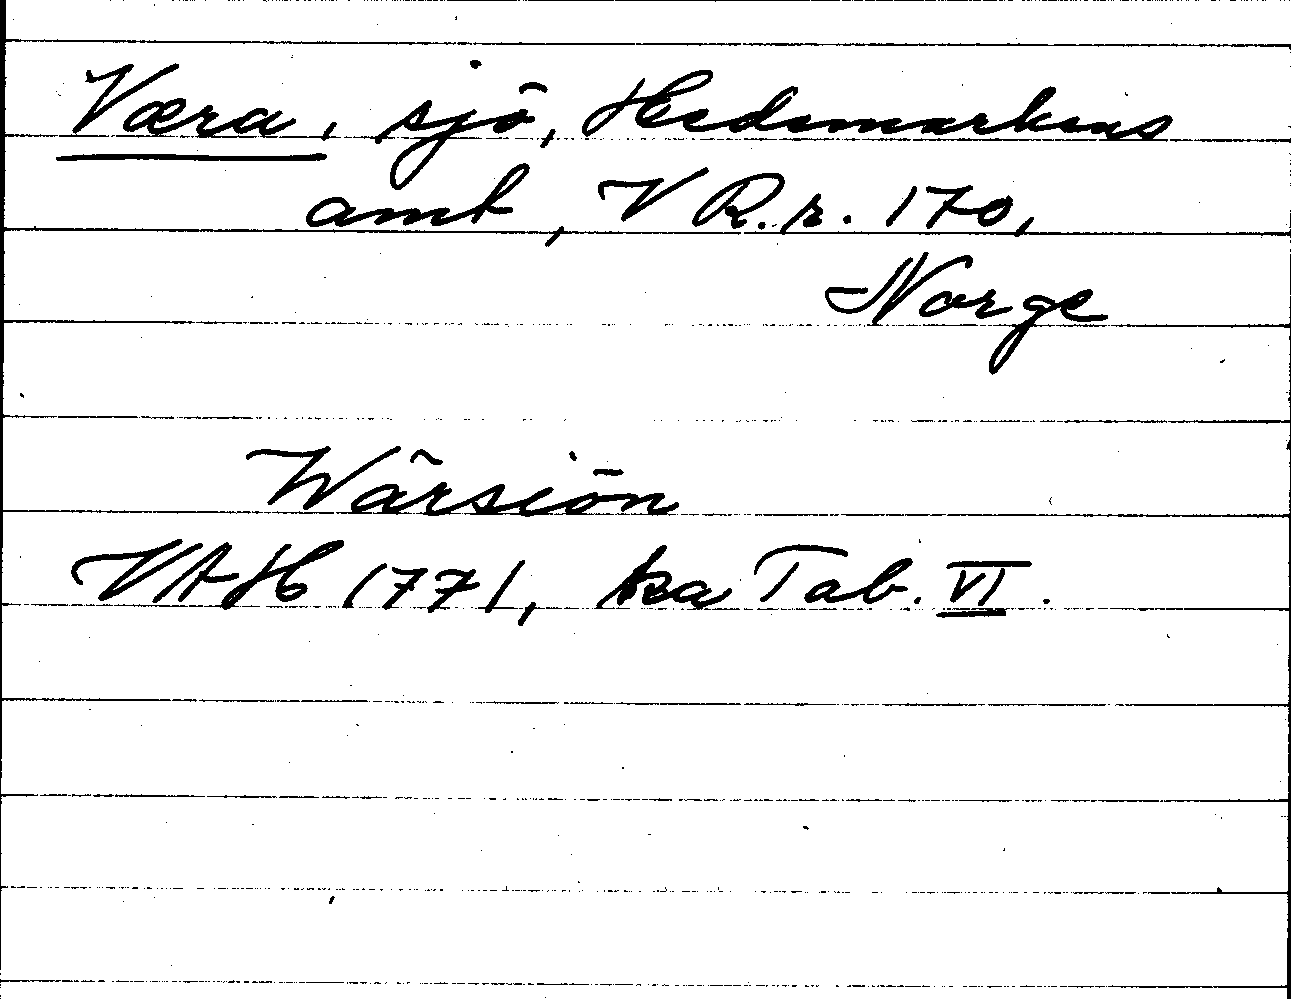 Væra, sjö, Hedemarkens
amt, V R.r. 170,
Norge
Wärsiön
VAH 1771, ka Tab. VI.